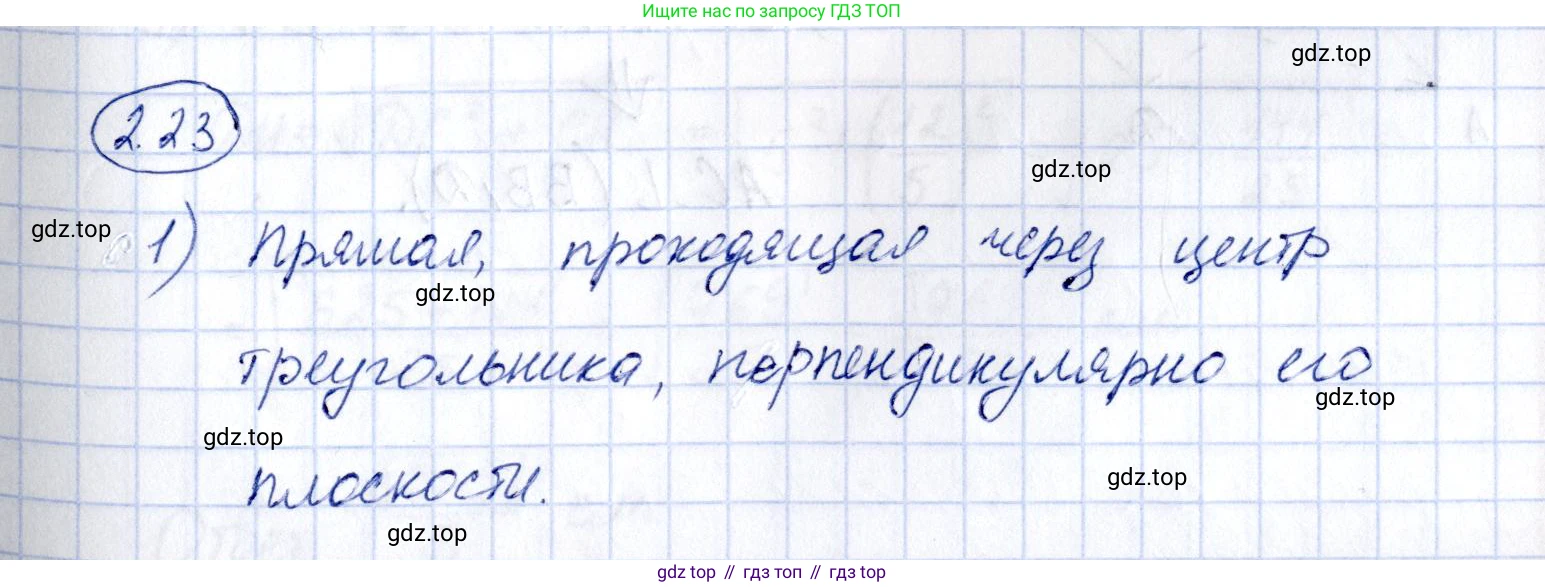 Ищите нас по запросу ГДЗ ТОП
gdz.top
2.23
gdz.top
gdz.top
1) Прямая, проходящая через центр
gdz.top
треугольника, перпендикулярно его
gdz.top
gdz.top
плоскости.
gdz.top
gdz.top
gdz top // гдз топ // gdz top